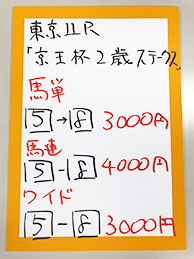 東京11R
「京王杯2歳ステークス」
馬単
5→8 3000円
馬連
5-8 4000円
ワイド
5-8 3000円